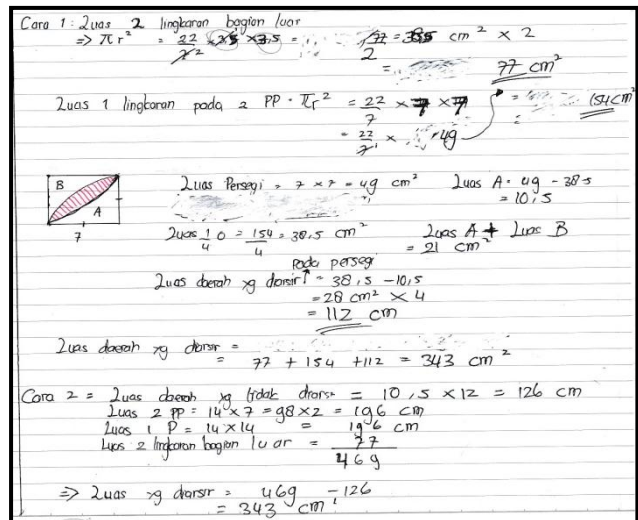 Cara 1 : Luas 2 lingkaran bagian luar
=> πr² = 22/7 × 3,5 × 3,5 = 77/2 = 38,5 cm² × 2
= 77 cm²
Luas 1 lingkaran pada 2 PP . πr² = 22/7 × 7 × 7 = 154 cm²
= 22/7 × 49
B
A
7
Luas Persegi = 7 × 7 = 49 cm²
Luas A = 49 - 38,5
= 10,5
Luas 1/4 O = 154/4 = 38,5 cm²
Luas A + Luas B
= 21 cm²
pada persegi
Luas daerah yg diarsir = 38,5 - 10,5
= 28 cm² × 4
= 112 cm
Luas daerah yg diarsir =
= 77 + 154 + 112 = 343 cm²
Cara 2 = Luas daerah yg tidak diarsir = 10,5 × 12 = 126 cm
Luas 2 PP = 14 × 7 = 98 × 2 = 196 cm
Luas 1 P = 14 × 14 = 196 cm
Luas 2 lingkaran bagian luar = 77
469
=> Luas yg diarsir = 469 - 126
= 343 cm²